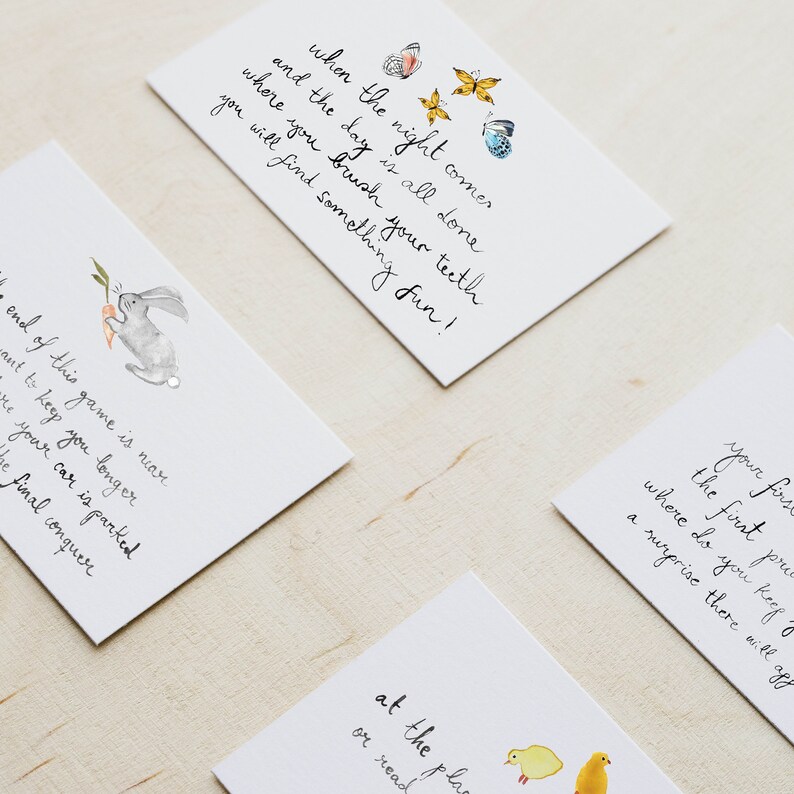 when the night comes
and the day is all done
where you brush your teeth
you will find something fun!
end of this game is near
to keep you longer
your car is parked
final conquer
your first
the first
where do you keep
a surprise there will
at the
or read